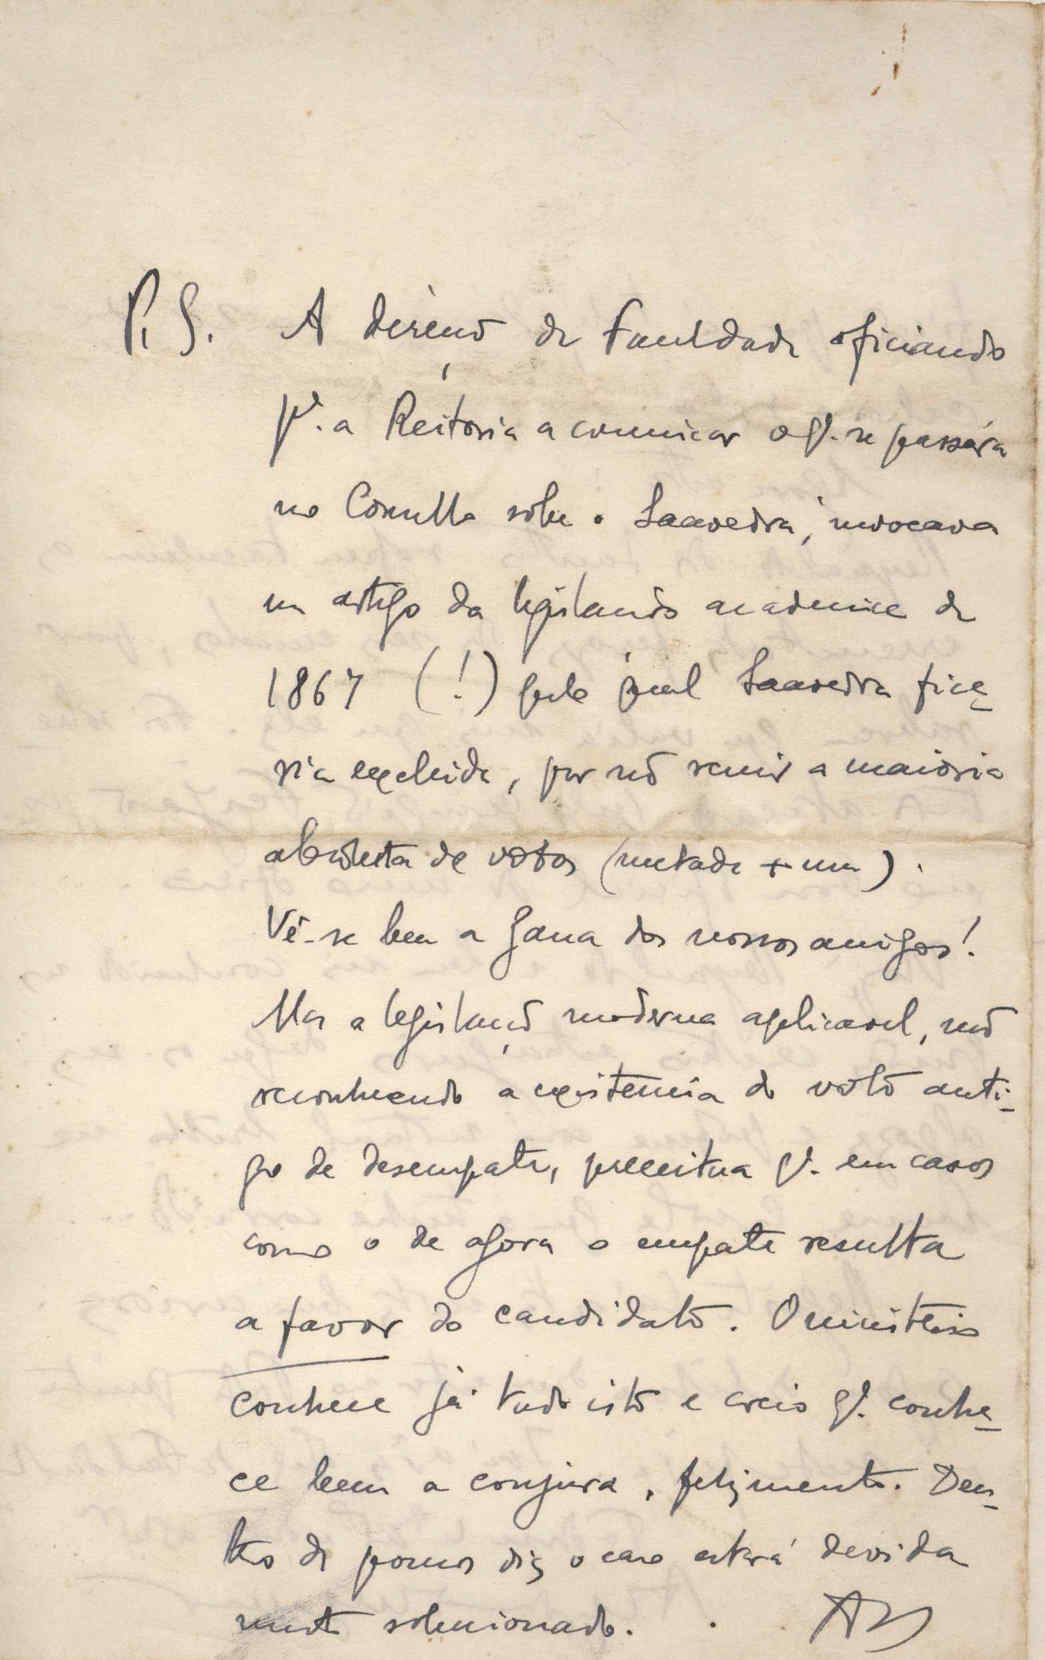 P. S. A direção da Faculdade oficiando
pª. a Reitoria a comunicar o q. se passára
no Conselho sobre o Saavedra, invocava
um artigo da legislação academica de
1867 (!) pelo qual Saavedra fica-
ria excluido, por não reunir a maioria
absoluta de votos (metade + um).
Vê-se bem a gana dos nossos amigos!
Mas a legislação moderna aplicavel, não
reconhecendo a existencia do voto anti-
go de desempate, preceitua q. em casos
como o de agora o empate resulta
a favor do candidato. O ministerio
conhece já tudo isto e creio q. conhe-
ce bem a conjura, felizmente. Den-
tro de poucos dias o caso estará devida
mente solucionado.